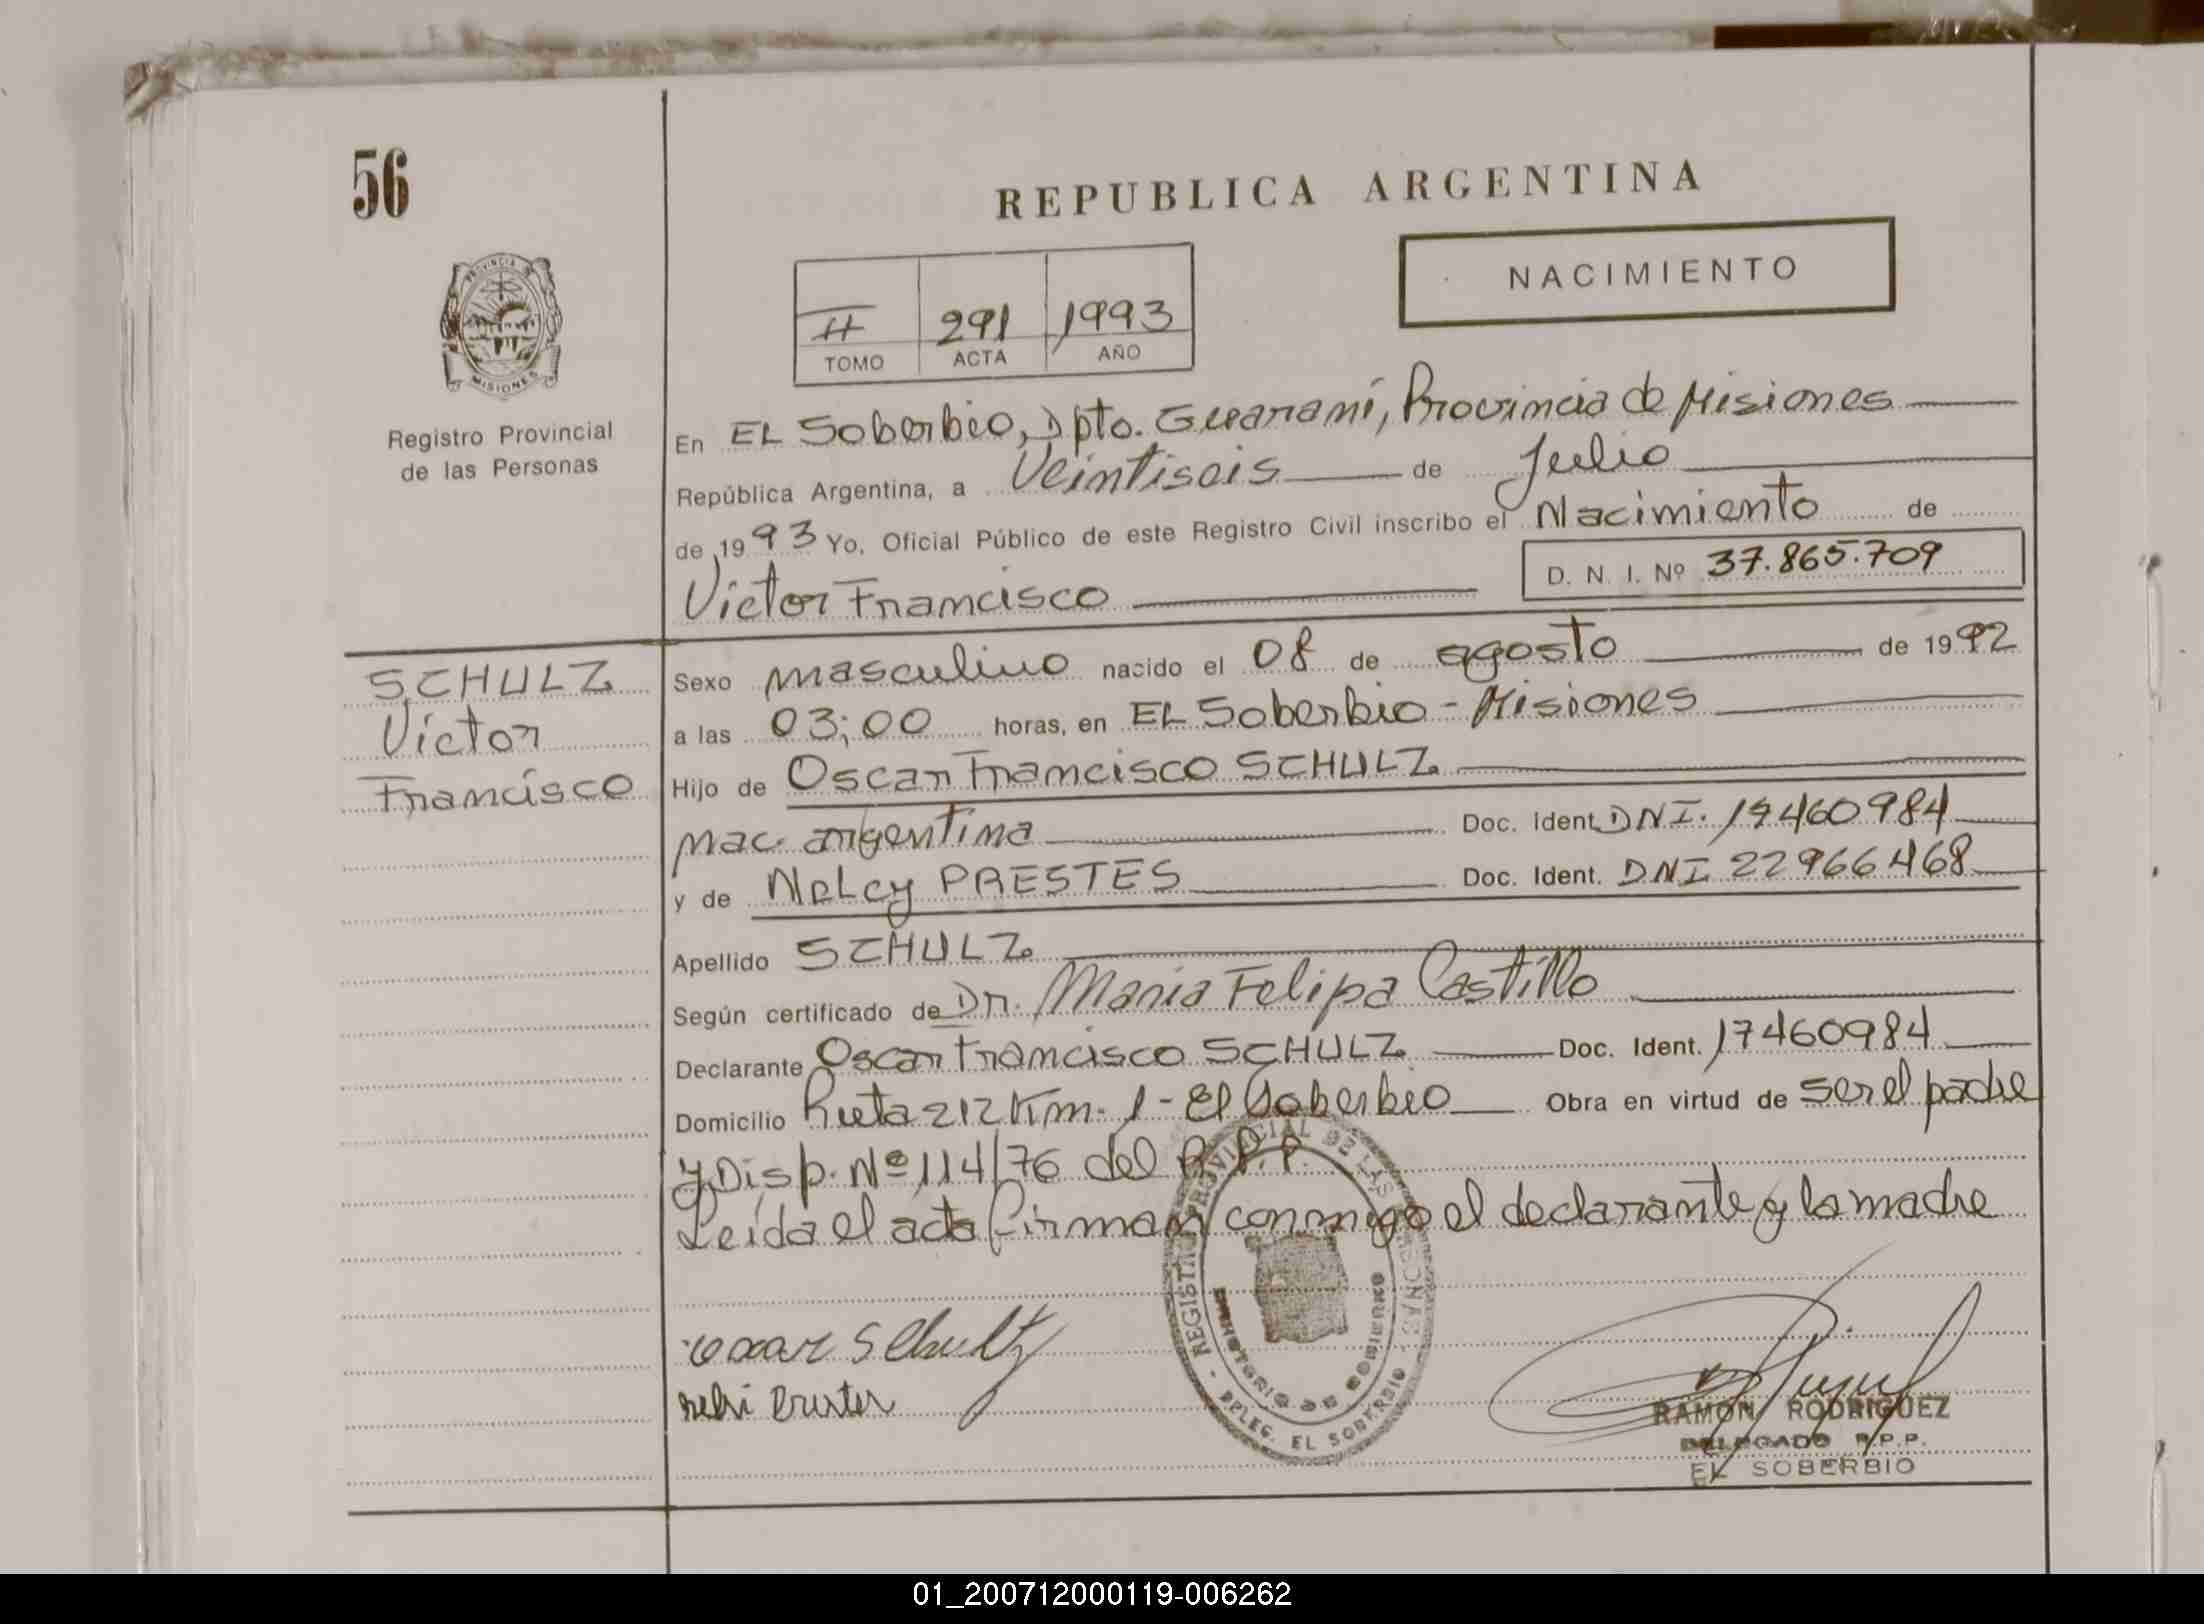 56
REPUBLICA ARGENTINA
NACIMIENTO
II 291 1993
TOMO ACTA AÑO
PROVINCIA DE MISIONES
Registro Provincial
de las Personas
En EL Soberbio, Dpto. Guaraní, Provincia de Misiones
República Argentina, a Veintiseis de Julio
de 1993 Yo, Oficial Público de este Registro Civil inscribo el Nacimiento de
Victor Francisco D. N. I. Nº 37.865.709
SCHULZ
Victor
Francisco
Sexo masculino nacido el 08 de agosto de 1992
a las 03;00 horas, en EL Soberbio - Misiones
Hijo de Oscar Francisco SCHULZ
nac. argentina Doc. Ident. DNI. 17460984
y de Nelcy PRESTES Doc. Ident. DNI 22966468
Apellido SCHULZ
Según certificado de Dr. Maria Felipa Castillo
Declarante Oscar Francisco SCHULZ Doc. Ident. 17460984
Domicilio Ruta 212 Km. 1 - El Soberbio Obra en virtud de ser el padre
y Disp. Nº 114/76 del R.P.P.
Leída el acta firman conmigo el declarante y la madre
REGISTRO PROVINCIAL DE LAS PERSONAS
MINISTERIO DE GOBIERNO
DELEG. EL SOBERBIO
oscar Schultz
RAMON RODRIGUEZ
DELEGADO R.P.P.
EL SOBERBIO
01_200712000119-006262